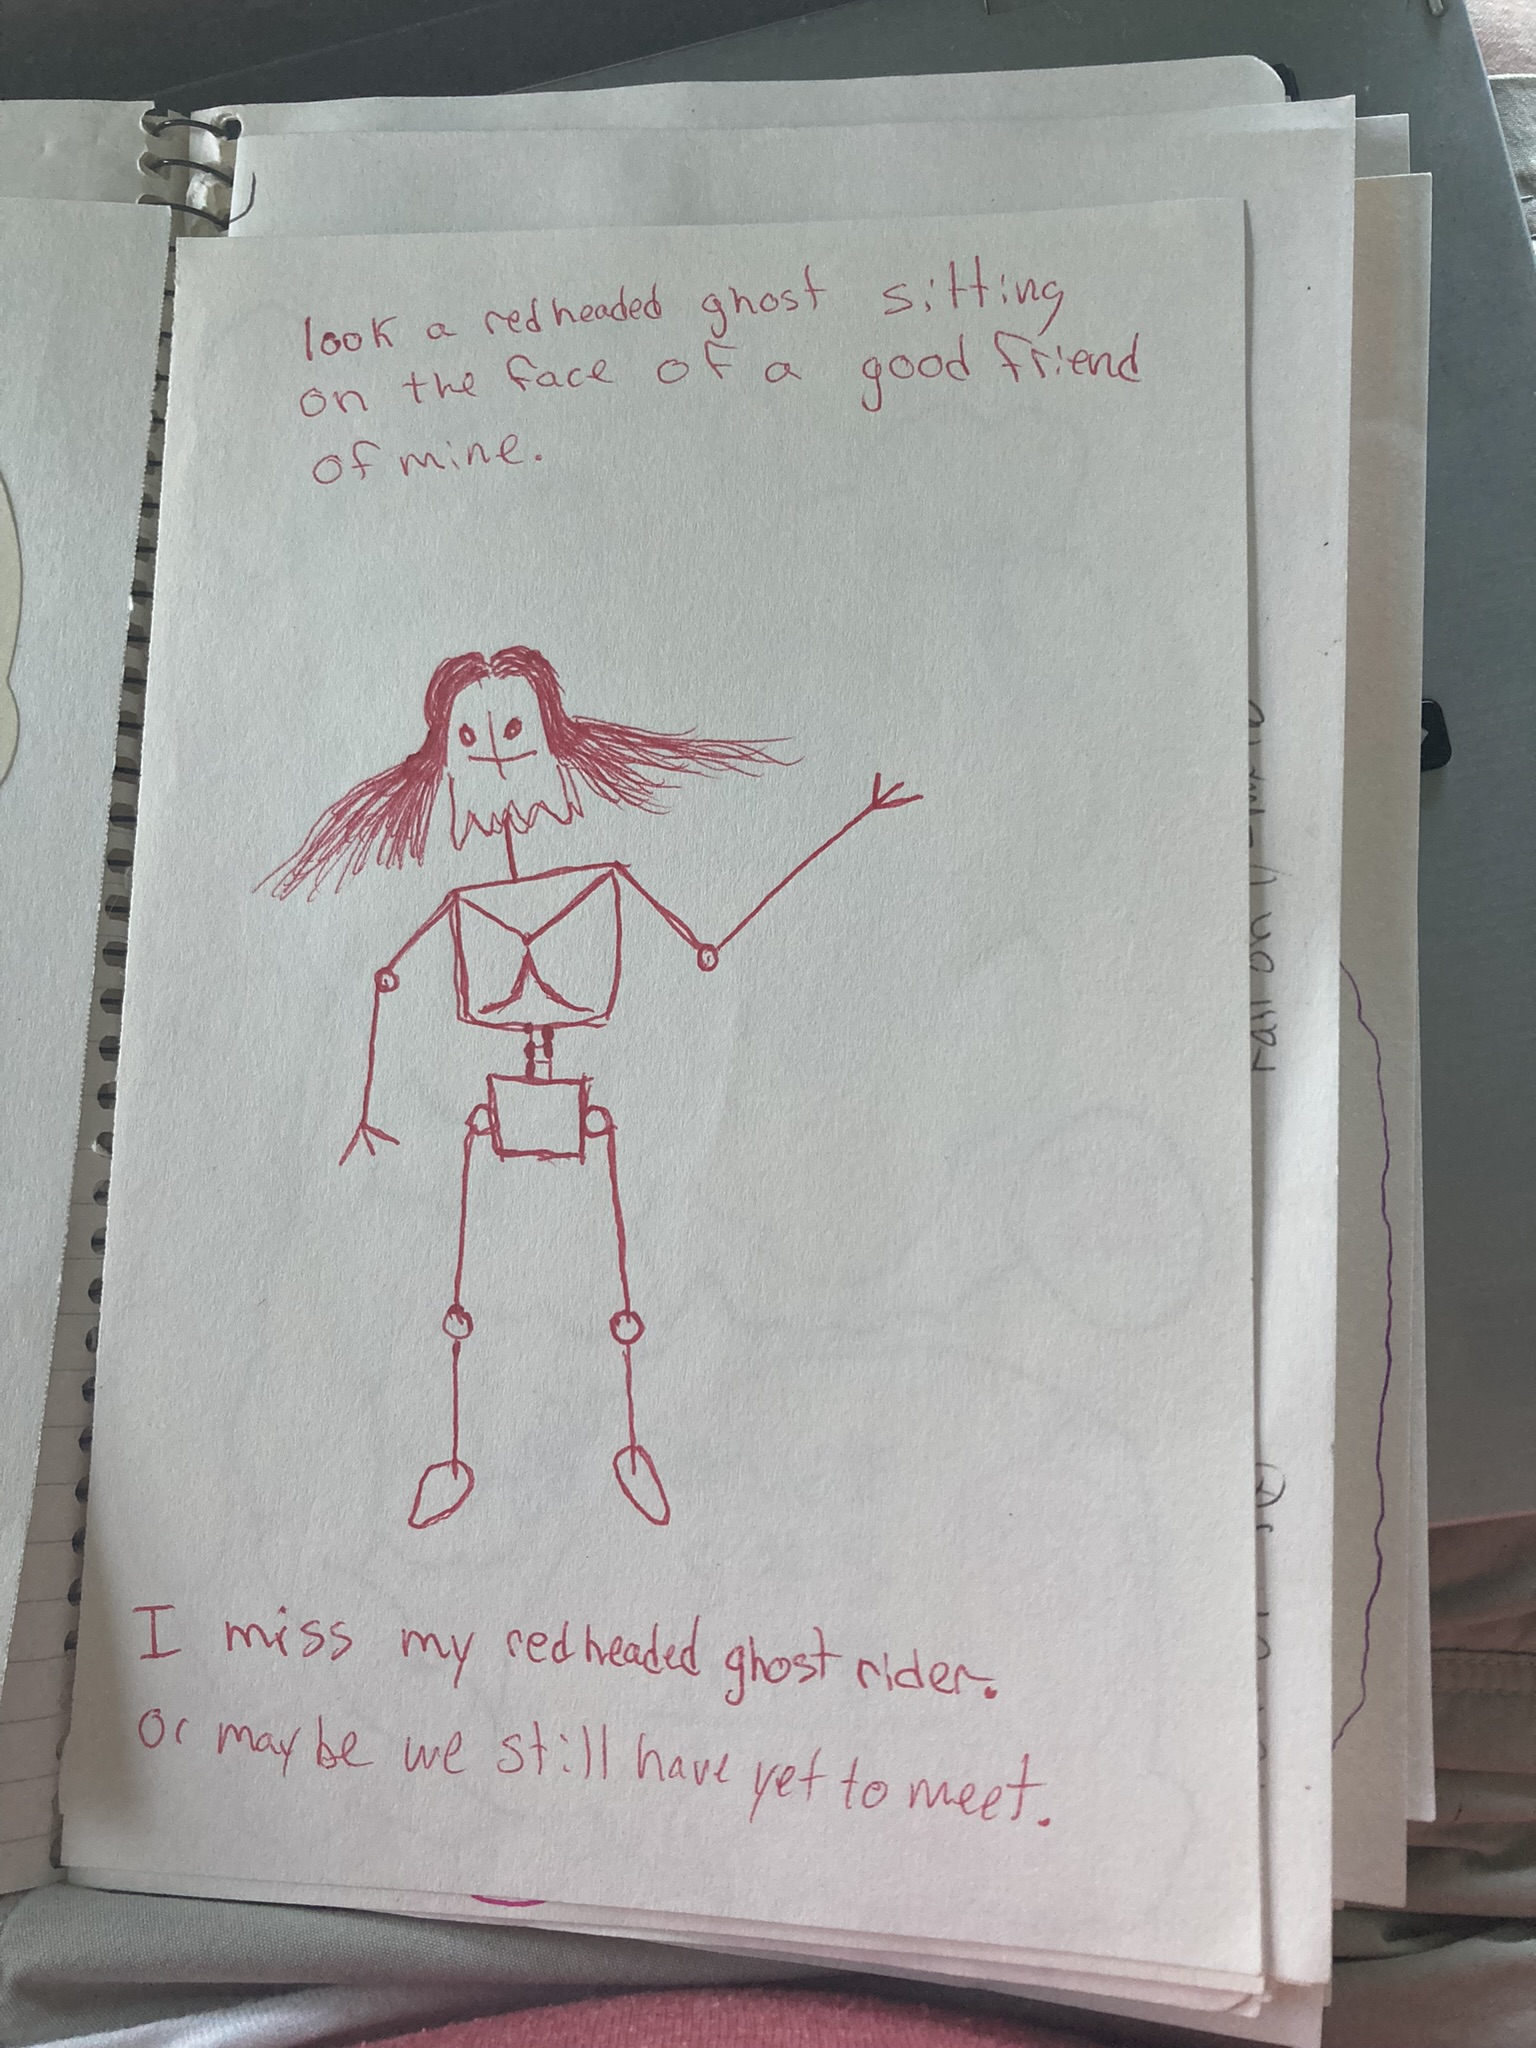 look a redheaded ghost sitting
on the face of a good friend
of mine.
I miss my redheaded ghost rider.
or maybe we still have yet to meet.